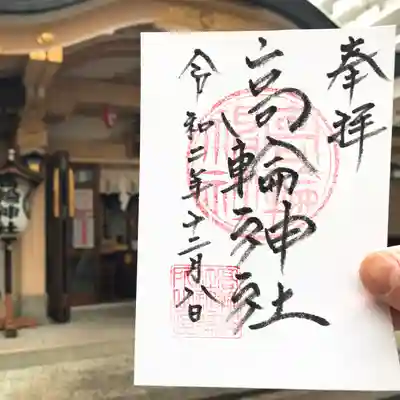 奉拝
高輪神社
令和二年十二月八日
輪神社